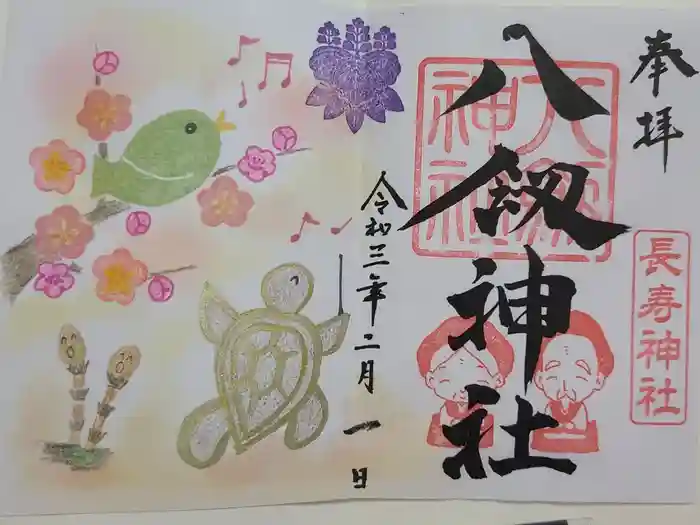 奉拝
長寿神社
八剱神社
八剱神社
令和三年二月一日